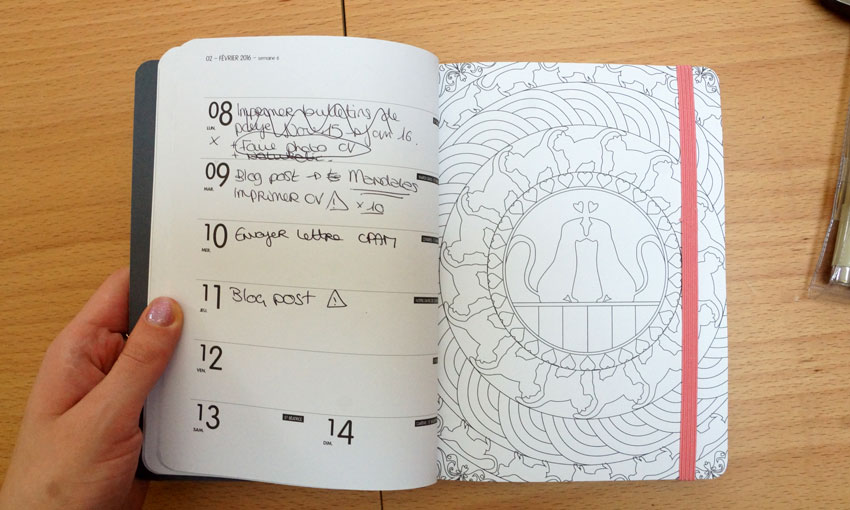 02 - FÉVRIER 2016 - semaine 6
08 Imprimer bulletins de
LUN. paye Jan 15 → Jan 16.
x + Faire photo CV
09 Blog post → Mandalas
MAR. imprimer CV ⚠ x 10
10 Envoyer lettre CPAM
MER.
11 Blog post ⚠
JEU.
12
VEN.
13 14
SAM. DIM.